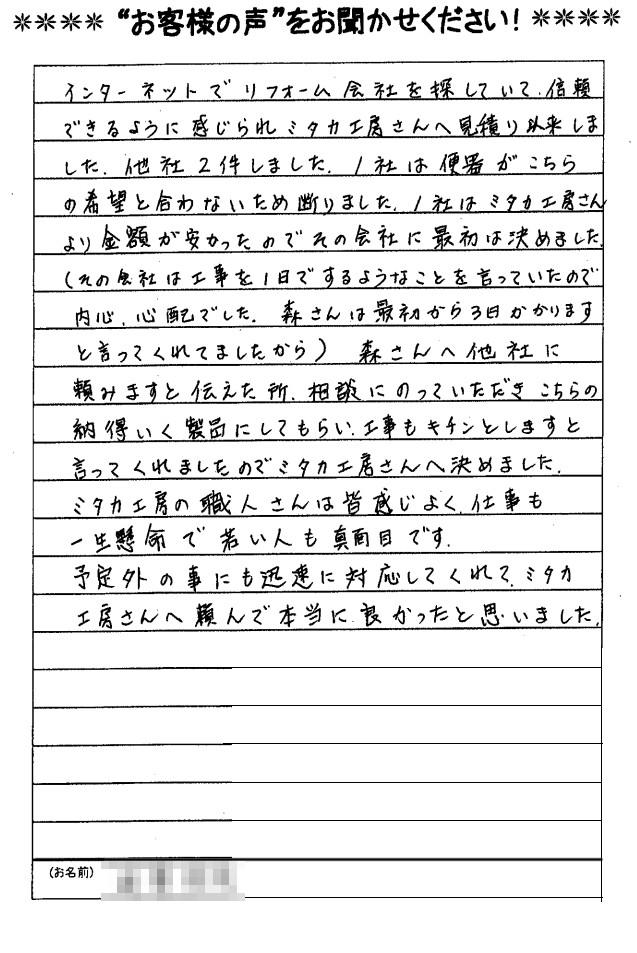 ✳✳✳✳ “お客様の声”をお聞かせください! ✳✳✳✳
インターネットでリフォーム会社を探していて、信頼
できるように感じられミタカ工房さんへ見積り以来しま
した。他社2件しました。1社は便器がこちら
の希望と合わないため断りました。1社はミタカ工房さん
より金額が安かったのでその会社に最初は決めました。
(その会社は工事を1日でするようなことを言っていたので
内心、心配でした。森さんは最初から3日かかります
と言ってくれてましたから) 森さんへ他社に
頼みますと伝えた所、相談にのっていただきこちらの
納得いく製品にしてもらい、工事もキチンとしますと
言ってくれましたのでミタカ工房さんへ決めました。
ミタカ工房の職人さんは皆感じよく、仕事も
一生懸命で若い人も真面目です。
予定外の事にも迅速に対応してくれて、ミタカ
工房さんへ頼んで本当に良かったと思いました。
(お名前)